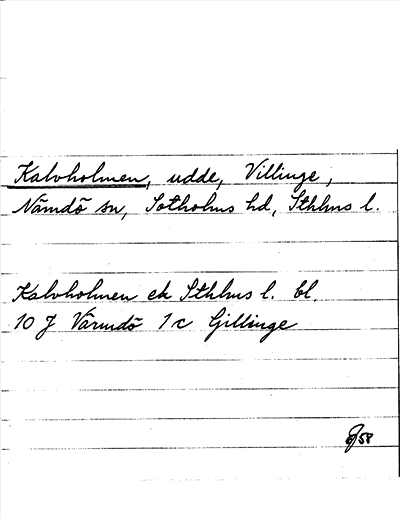 Kalvholmen, udde, Villinge,
Nämdö sn, Sotholms hd, Sthlms l.
Kalvholmen ek Sthlms l. bl
10 J Värmdö 1c Gillinge
58